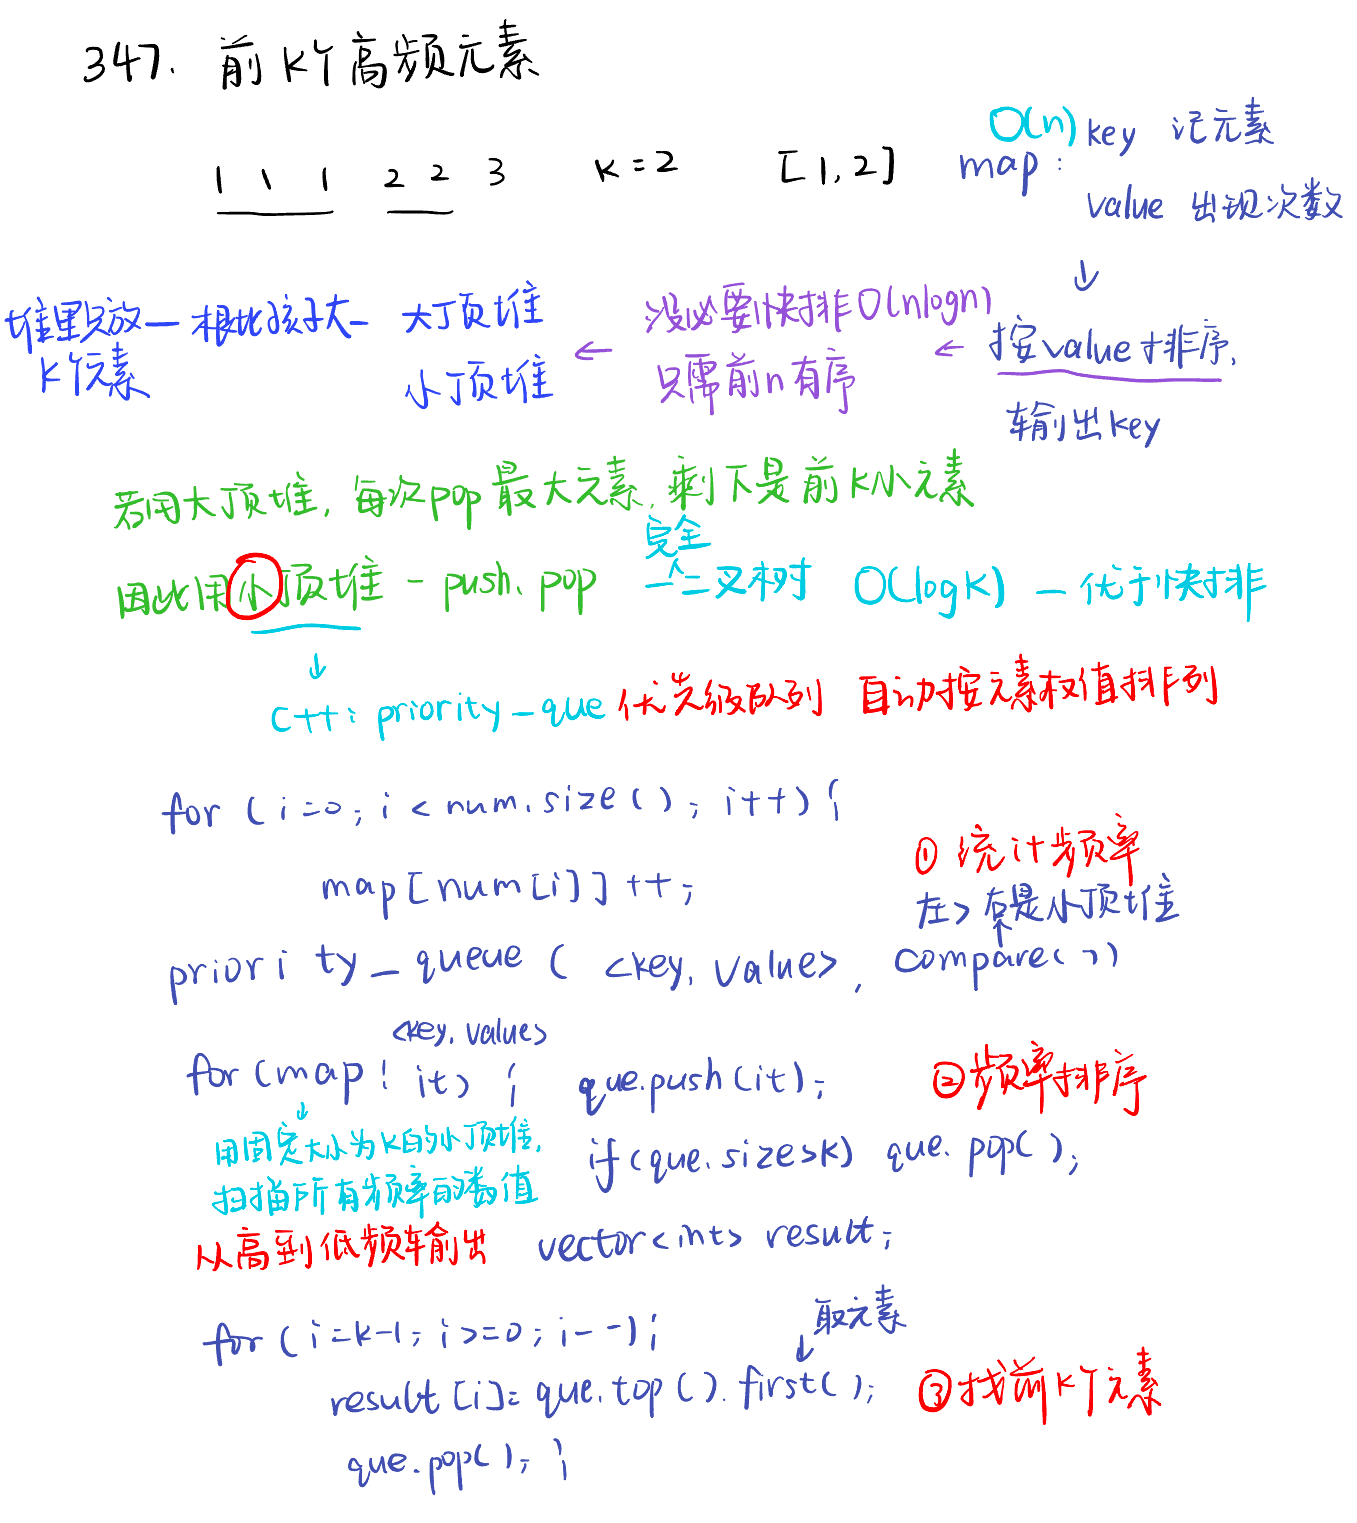 347. 前K个高频元素
1 1 1 2 2 3 K=2 [1,2]
O(n) key 记元素
map:
value 出现次数
↓
堆里只放 — 根比孩子大 — 大顶堆 ← 没必要快排O(nlogn) ← 按value排序,
K个元素 小顶堆 只需前n有序
输出key
若用大顶堆, 每次pop最大元素, 剩下是前K小元素
因此用小顶堆 - push, pop 一个完全二叉树 O(logK) — 优于快排
↓
C++: priority_que 优先级队列 自动按元素权值排列
for (i=0; i<num.size(); i++){
map[num[i]]++;
① 统计频率
左>右是小顶堆
↑
priority_queue ( <key, value>, compare())
<key, value>
for (map: it) { que.push(it);
② 频率排序
↓
用固定大小为K的小顶堆,
扫描所有频率的数值
if (que.size>K) que.pop();
从高到低频率输出 vector<int> result;
for (i=k-1; i>=0; i--){
取元素
↓
result[i]= que.top().first();
③ 找前K个元素
que.pop(); }